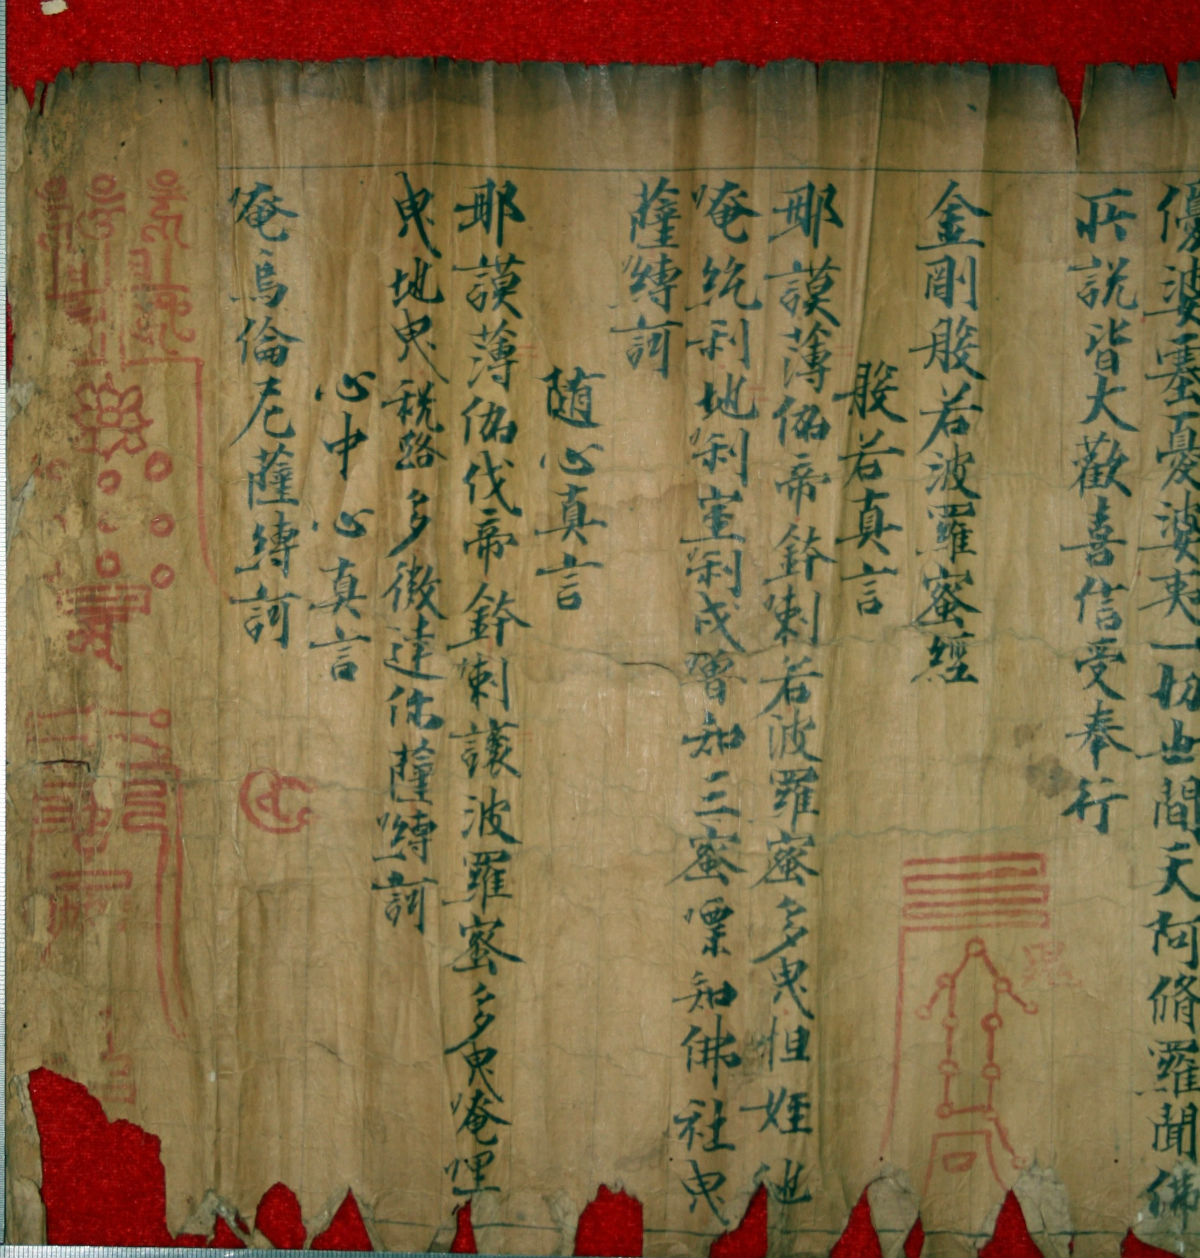 優婆塞優婆夷一切世間天阿脩羅聞佛
所說皆大歡喜信受奉行
金剛般若波羅蜜經
般若真言
那謨薄伽帝鉢剌若波羅蜜多曳怛姪他
唵紇利地利室利戍嚕知三蜜慄知佛社曳
薩嚩訶
随心真言
那謨薄伽伐帝鉢喇讓波羅蜜多曳唵哩
曳地曳税路多微達你薩嚩訶
心中心真言
唵烏倫尼薩嚩訶